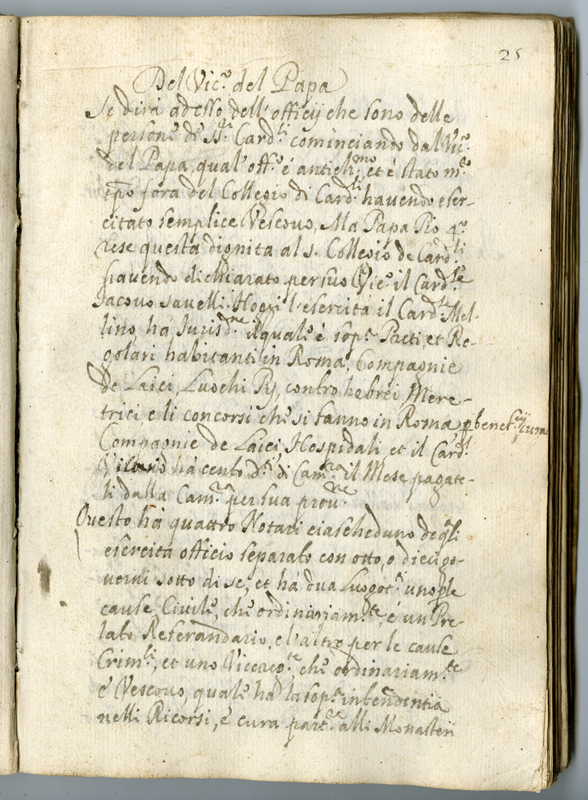 25
Del Vic.º del Papa
Se dirà adesso dell'officij che sono delle
persone de SS.ri Card.li cominciando dal Vic.º
del Papa, qual'off.º è antich.mo, et è stato m.to
tpo fora del Collegio di Card.li havendo eser-
citato semplice Vescovo, Ma Papa Pio 4.º
rese questa dignita al s. Collegio de Card.li
havendo dichiarato per suo Vic.º il Card.le
Jacovo Savelli. Hoggi l'esercita il Card.le Mel-
lino, ha Jurisd.ne il quale è sop.a Preti, et Re-
golari habitanti in Roma, Compagnie
de Laici, Luoghi Pij, contro hebrei, Mere-
trici e li concorsi che si fanno in Roma p benef.cij cura
Compagnie de Laici Hospidali, et il Card.l
Vicario ha cento d.ti di Cam.ra il Mese pagate-
li dalla Cam.ra per sua prov.ne
Questo ha quattro Notari ciascheduno degli
esercita officio separato con otto, o dieci go-
verni sotto di se, et há dua Luogot.i uno p le
cause Civile, che ordinariam.te, é un Pre-
lato Referandario, e l'altro per le cause
Crim.li, et uno Viceg.te, che ordinariam.te
é Vescovo, quale ha la sop.a intendentia
nelli Ricorsi, é cura part.re alli Monasteri